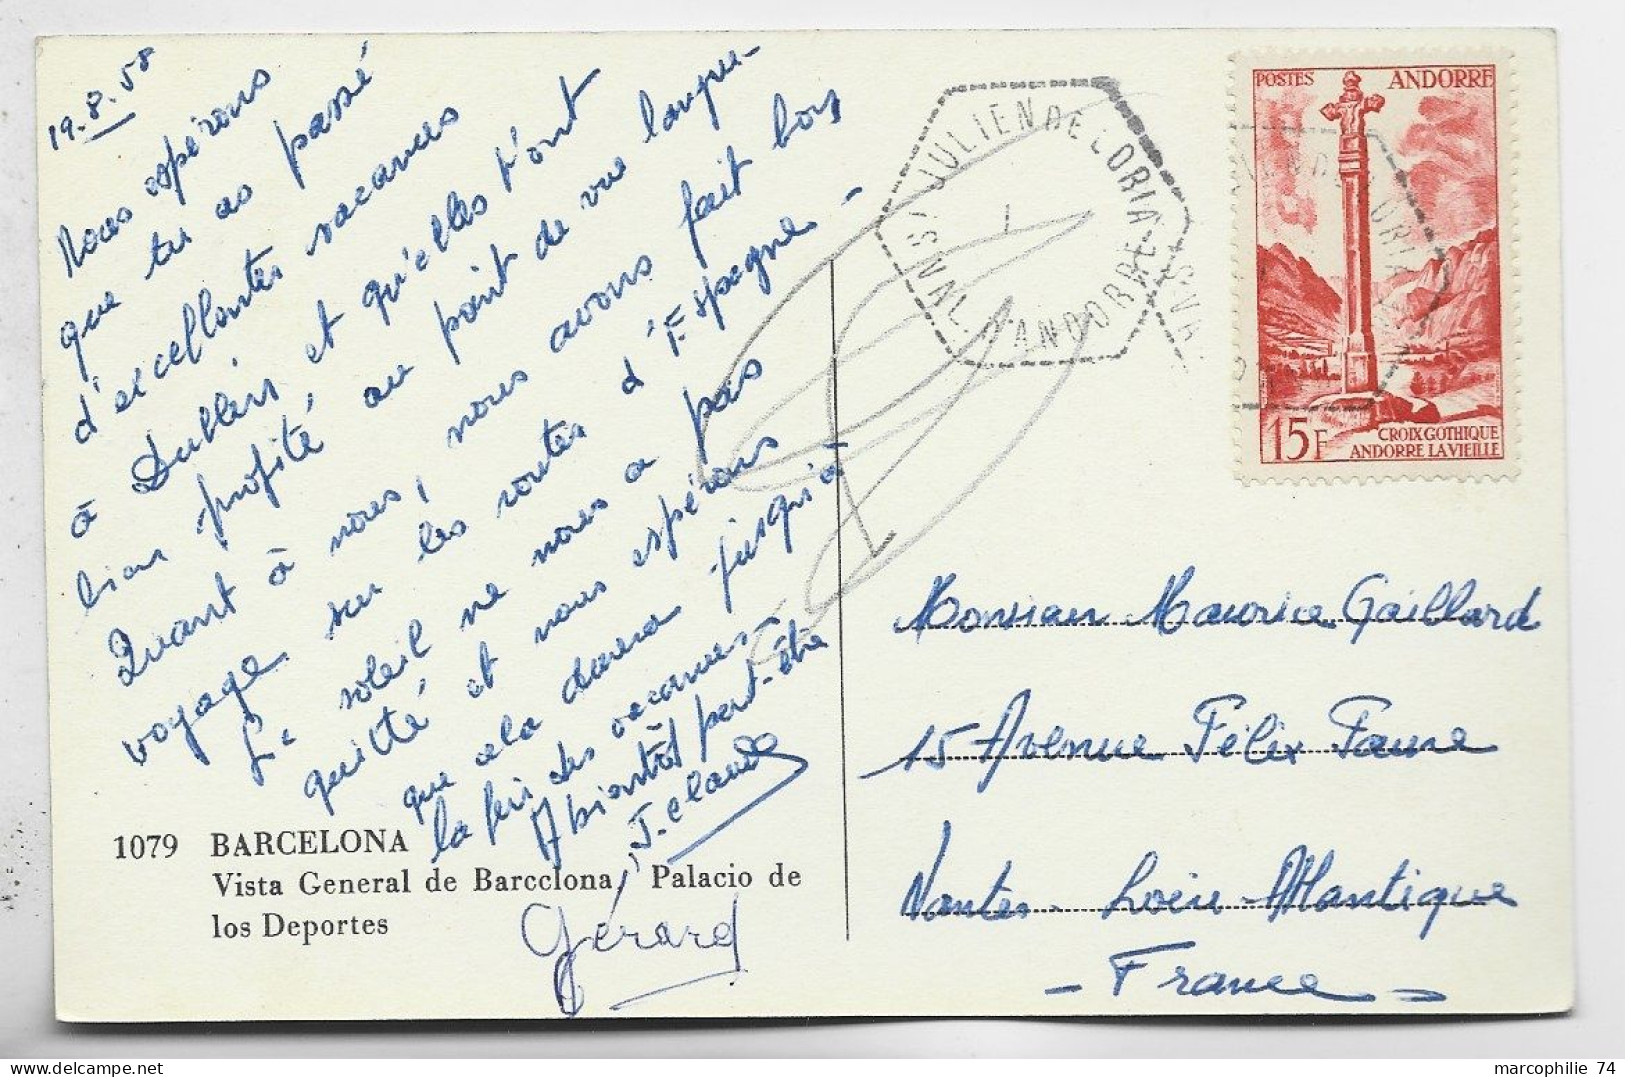 19.8.58
Nous espérons
que tu as passé
d'excellentes vacances
à Dublin et qu'elles t'ont
bien profité au point de vue langue -
Quant à nous, nous avons fait bon
voyage sur les routes d'Espagne -
Le soleil ne nous a pas
quitté et nous espérons
que cela durera jusqu'à
la fin des vacances -
A bientôt peut-être
J. Claude
Gérard
1079 BARCELONA
Vista General de Barcelona, Palacio de
los Deportes
ST JULIEN DE LORIA
VAL. D'ANDORRE
POSTES ANDORRE
15F
CROIX GOTHIQUE
ANDORRE LA VIEILLE
Monsieur Maurice Gaillard
15 Avenue Félix Faure
Nantes - Loire Atlantique
- France -
marcophilie 74